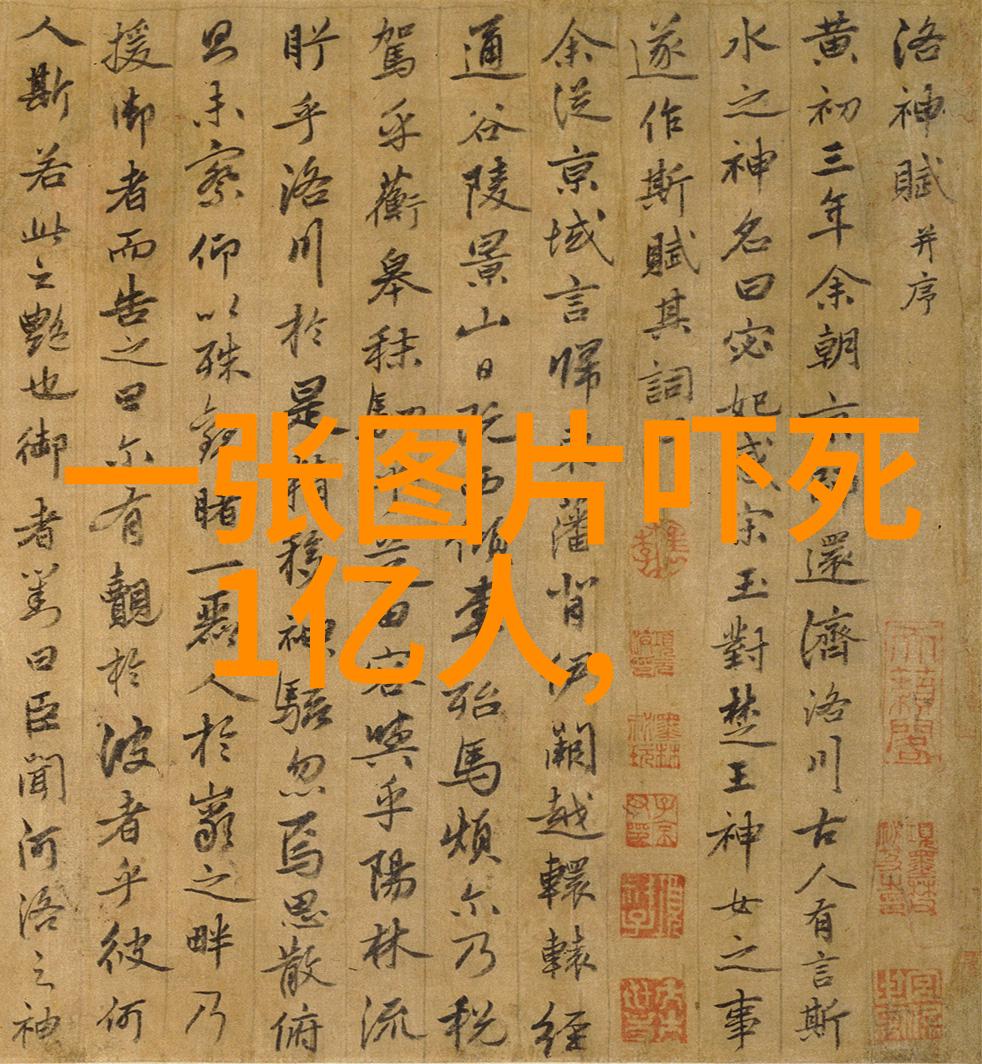 洛神賦并序
黄初三年余朝京師還濟洛川古人有言斯
水之神名曰宓妃感宋玉對楚王神女之事
遂作斯賦其詞
余從京域言歸東藩背伊闕越轘轅經
通谷陵景山日既西傾車殆馬煩尒乃税
駕乎蘅皋秣駟乎芝田容與乎陽林流
盻乎洛川於是精移神駭忽焉思散俯
則未察仰以殊觀睹一麗人於巖之畔乃
援御者而告之曰尒有覿於彼者乎彼何
人斯若此之艷也御者對曰臣聞河洛之神
一张图片吓死
1亿人,